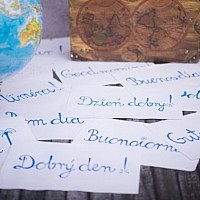 Goodmorning
Buenos dia
Dzień dobry!
m dia
Buongiorn
Gut
Dobrý den!